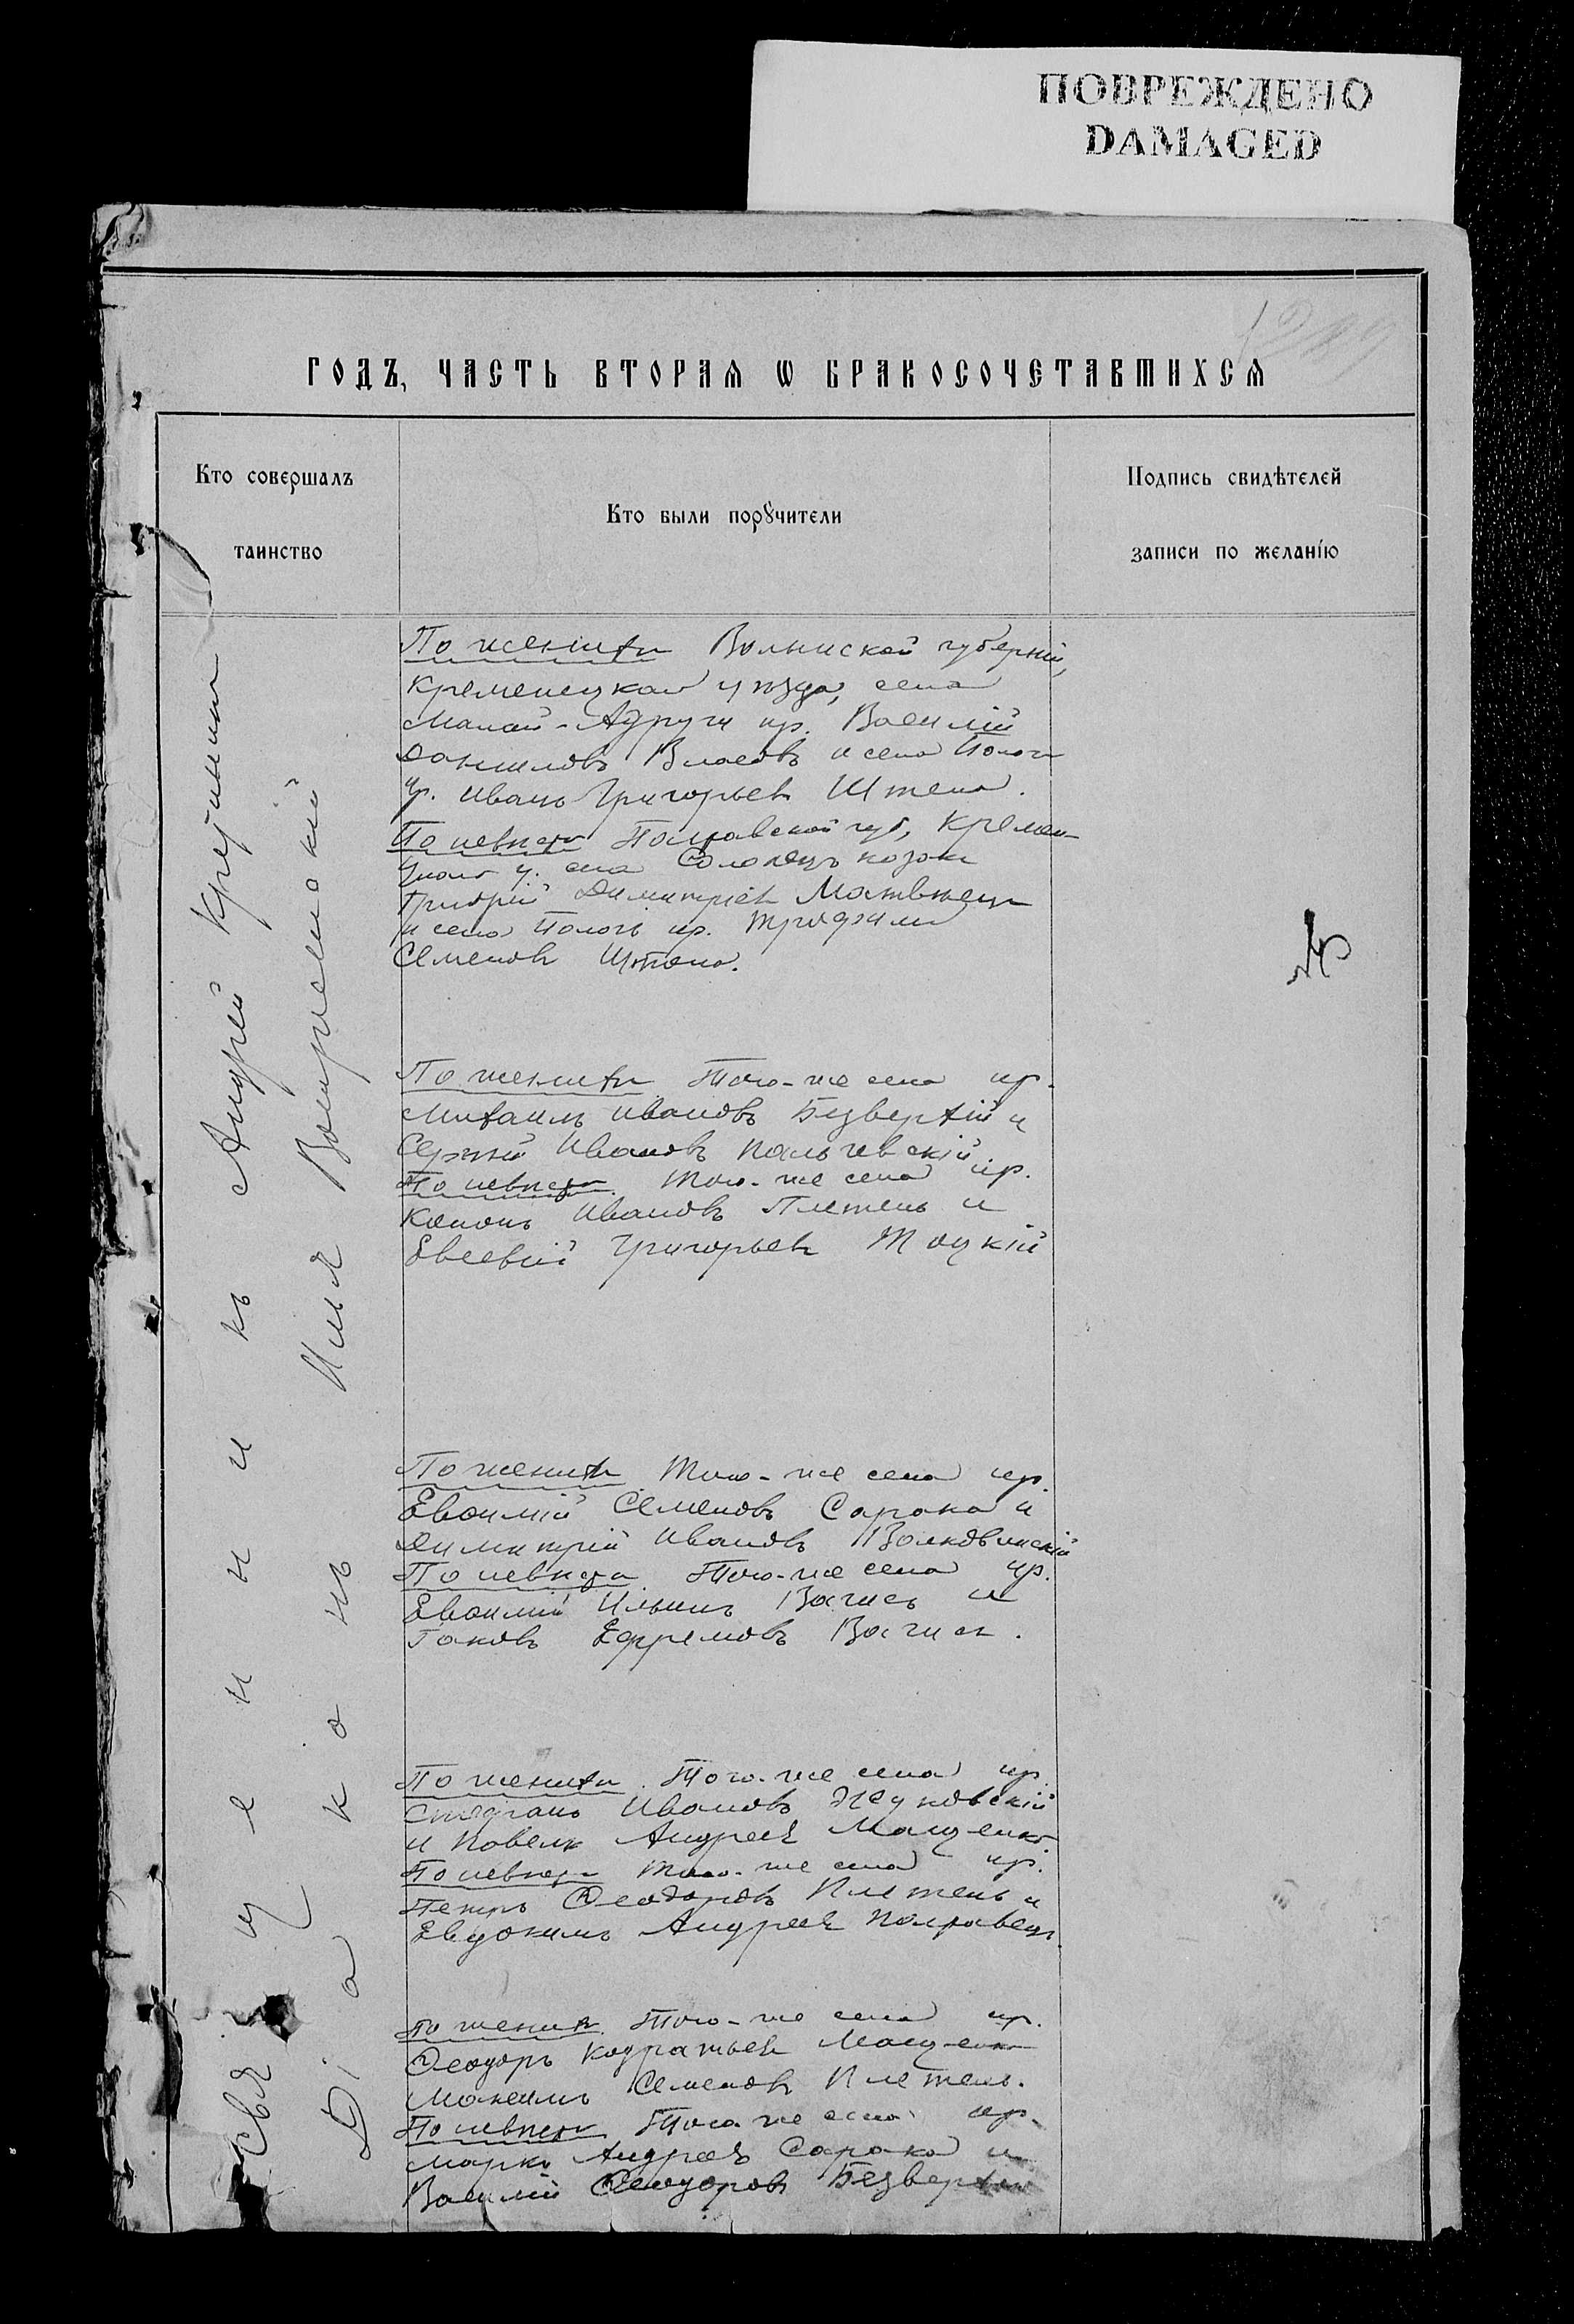 ПОВРЕЖДЕНО
DAMAGED
ГОДЪ, ЧАСТЬ ВТОРАЯ Ѡ БРАКОСОЧЕТАВШИХСЯ
Кто совершалъ
таинство
Кто были порꙋчители
Подпись свидѣтелей
записи по желанію
Священникъ Андрей
Діаконъ Илья
По женихѣ Волынской губерніи,
Кременецкаго уѣзда, села
Малой-Андруги кр. Василій
Даниловъ Власовъ и села Пологъ
кр. Иванъ Григорьевъ Штепа.
По невѣстѣ Полтавской губ, Кремен-
чукаго у. села козакъ
Григорій Димитріевъ Матвѣецъ
и села Пологъ кр. Трофимъ
Семеновъ Штепа.
По женихѣ Того-же села кр.
Михаилъ Ивановъ Безверхій и
Сергѣй Ивановъ Пальчевскій
По невѣстѣ Того-же села кр.
Кононъ Ивановъ Плетень и
Евсевій Григорьевъ Тоцкій
По женихѣ Того-же села кр.
Евѳимій Семеновъ Сорока и
Димитрій Ивановъ Волковинскій
По невѣстѣ Того-же села кр.
Евѳимій Ильинъ Вагисъ и
Іаковъ Ефремовъ Вагисъ.
По женихѣ Того-же села кр.
Стефанъ Ивановъ Жуковскій
и Павелъ Андреевъ Мащенко
По невѣстѣ Того-же села кр.
Петръ Ѳеодоровъ Плетень и
Евдокимъ Андреевъ Полтавецъ
По женихѣ Того-же села кр.
Ѳеодоръ Кодратьевъ Мащенко
Максимъ Семеновъ Плетень.
По невѣстѣ Того же села кр.
Марко Андреевъ Сорока и
Василій Ѳеодоровъ Безверхій